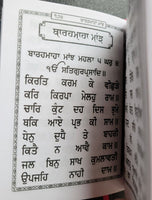 ਬਾਰਹਮਾਹਾ ਮਾਂਝ
ਬਾਰਹਮਾਹਾ ਮਾਂਝ ਮਹਲਾ ੫ ਘਰੁ ੪
ੴ ਸਤਿਗੁਰਪ੍ਰਸਾਦਿ ॥
ਕਿਰਤਿ ਕਰਮ ਕੇ ਵੀਛੁੜੇ
ਕਰਿ ਕਿਰਪਾ ਮੇਲਹੁ ਰਾਮ ॥
ਚਾਰਿ ਕੁੰਟ ਦਹ ਦਿਸ ਭ੍ਰਮੇ
ਥਕਿ ਆਏ ਪ੍ਰਭ ਕੀ ਸਾਮ ॥
ਧੇਨੁ ਦੁਧੈ ਤੇ ਬਾਹਰੀ
ਕਿਤੈ ਨ ਆਵੈ ਕਾਮ ॥
ਜਲ ਬਿਨੁ ਸਾਖ ਕੁਮਲਾਵਤੀ
ਉਪਜਹਿ ਨਾਹੀ ਦਾਮ ॥